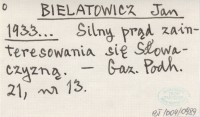 BIELATOWICZ Jan
1933... Silny prąd zain-
teresowania się Słowa-
czyzną. — Gaz. Podh.
21, nr 13.